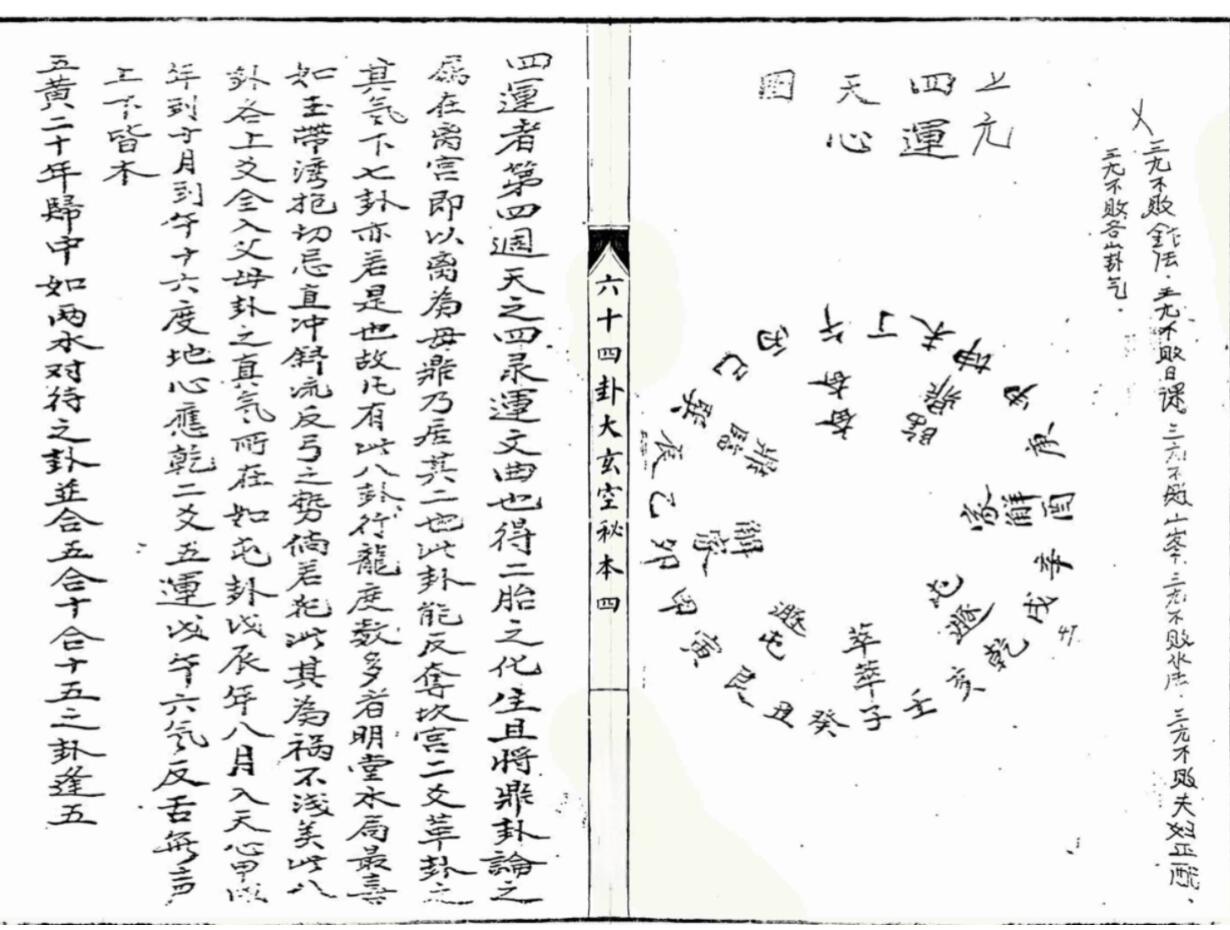 三元不敗金法．三元不敗日課。三元不敗山峯．三元不敗水法．三元不敗夫妇正配、
三元不敗各山卦气．
上元
四運
天心
圖
午丁未坤申庚酉辛戌乾亥壬子癸丑艮寅甲卯乙辰巽巳丙
奮奮
鼎臨
蒙解
屯遯
萃萃
遯屯
解蒙
鼎臨
47
六十四卦大玄空秘本 四
四運者第四週天之四录運文曲也得二胎之化生且將鼎卦論之
屬在离宮即以离為母鼎乃居其二也此卦能反奪坎宮二爻革卦之
其氣下七卦亦若是也故凡有此八卦行龍度数多者明堂水局最喜
如玉帶湾抱切忌直冲斜流反弓之势倘若犯此其為祸不浅美此八
卦各上爻全入父母卦之真氣所在如屯卦戊辰年八月入天心甲戌
年到寸月到午十六度地心應乾二爻五運戊午六氣反舌無声
上下皆木
五黃二十年歸中如两水对待之卦並合五合十合十五之卦逢五